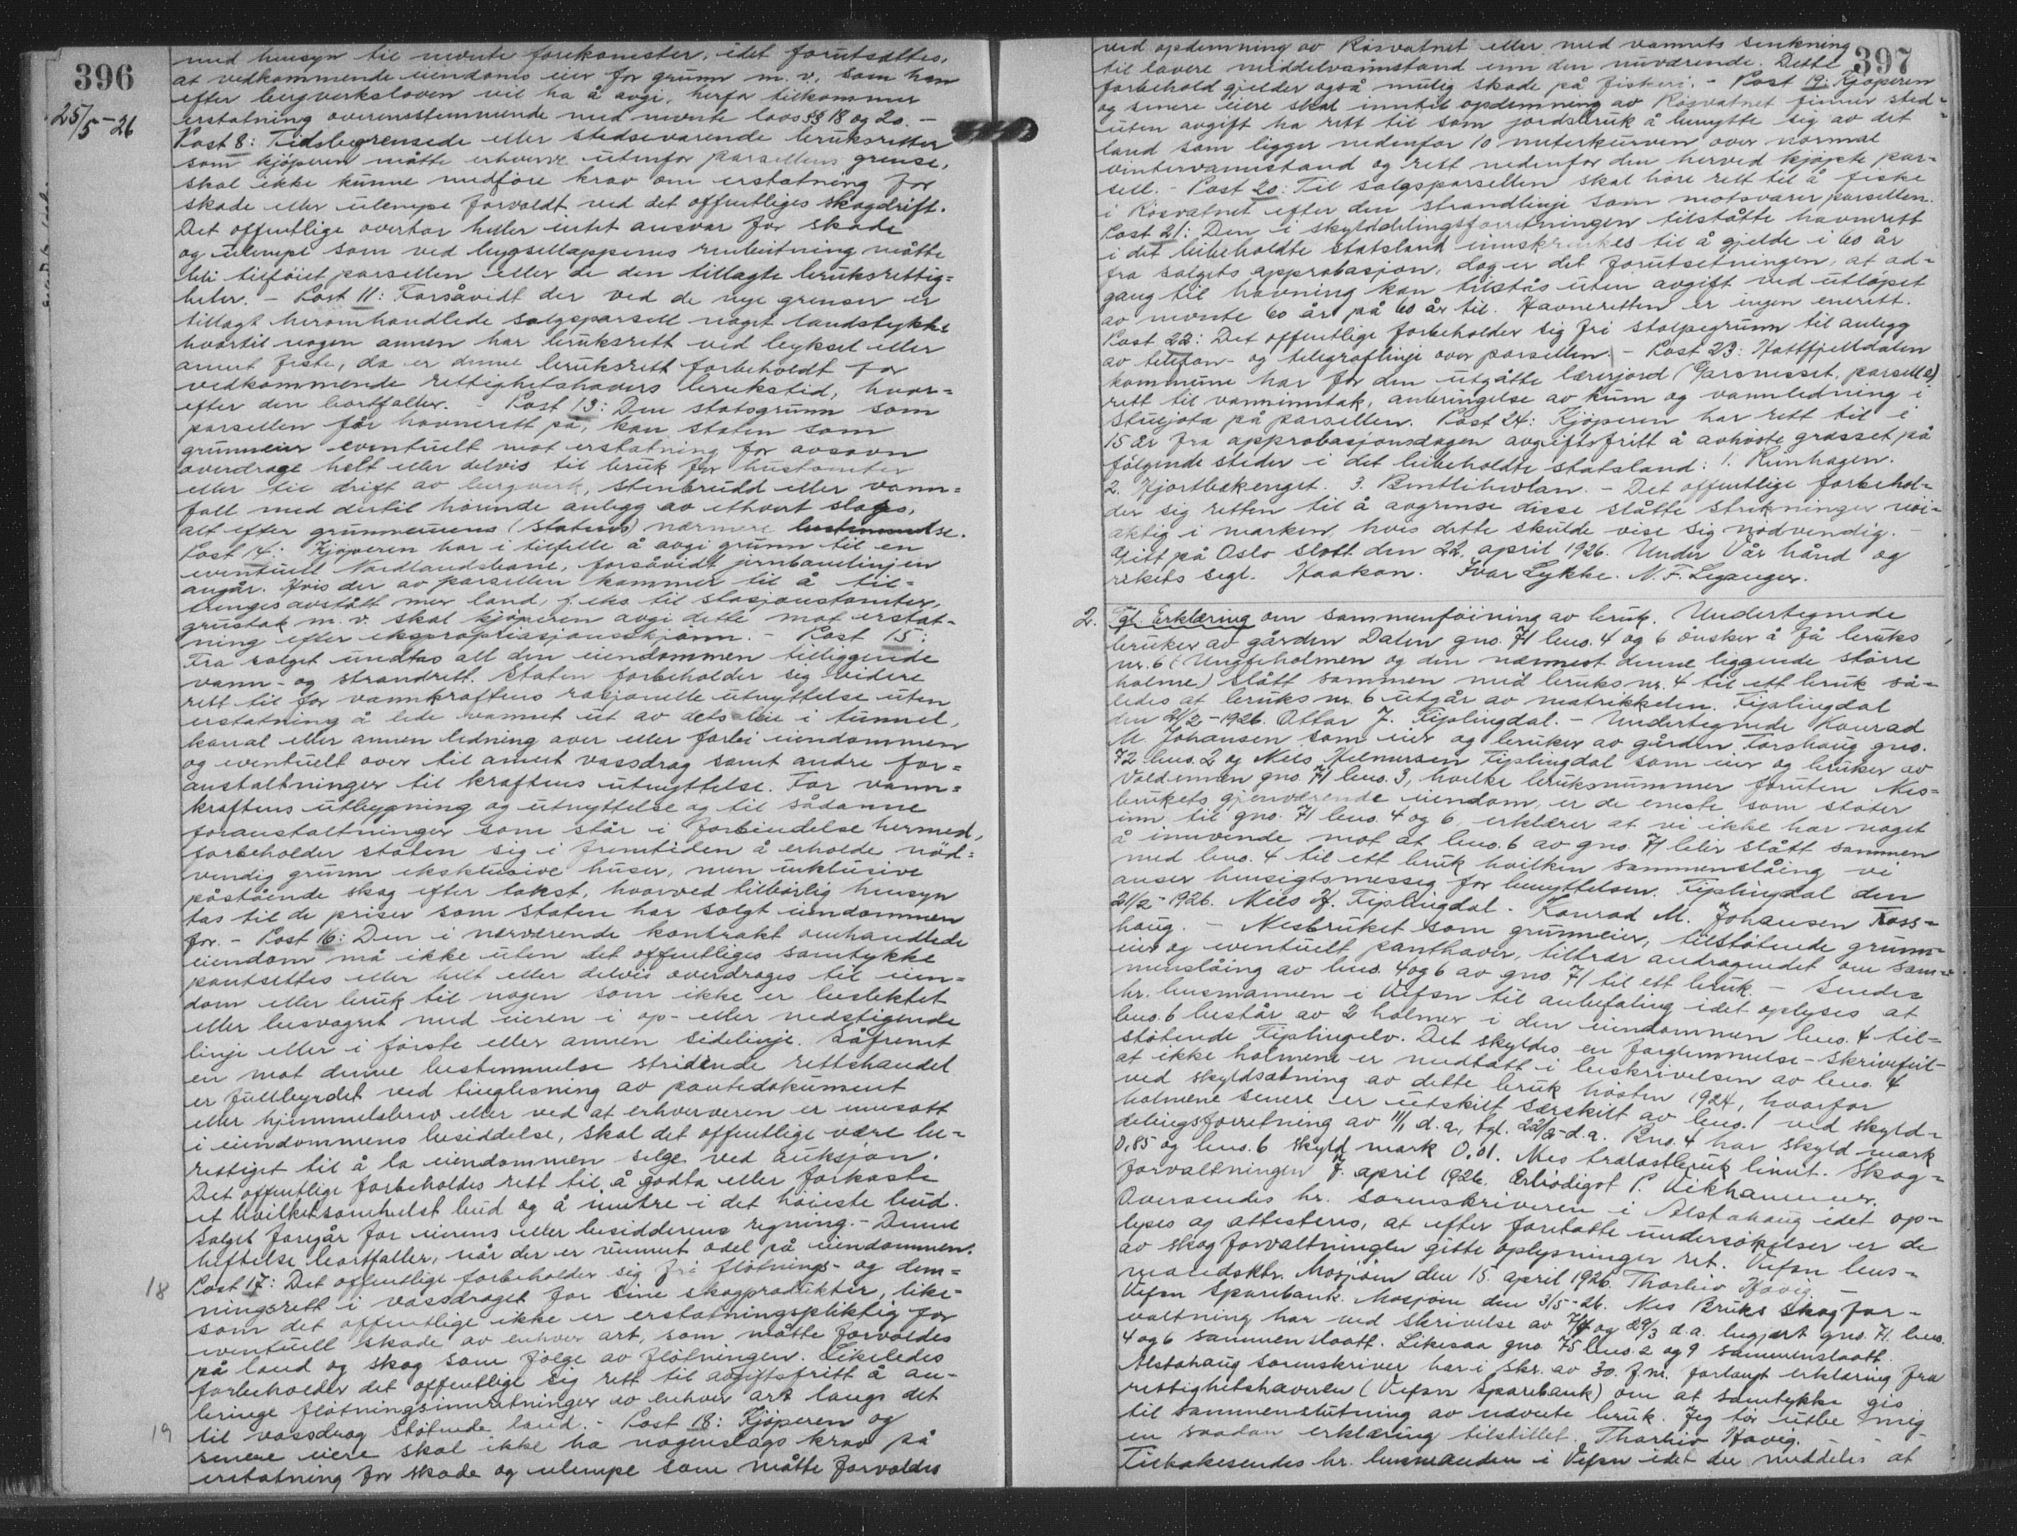 396
25/5-26
med hensyn til nevnte forekomster, idet forutsættes,
at vedkommende eiendoms eier for grunn m. v. som han
efter bergverksloven vil ha å avgi, herfor tilkommer
erstatning overensstemmende med nevnte lovs §§ 18 og 20. –
Post 8: Tidsbegrensede eller stedsevarende bruksretter
som kjøperen måtte erhverve utenfor parsellens grense,
skal ikke kunne medføre krav om erstatning for
skade eller ulempe forvoldt ved det offentliges skogdrift.
Det offentlige overtar heller intet ansvar for skade
og ulempe som ved bygsellappenes renbeitning måtte
bli tilføiet parsellen eller de den tillagte bruksrettig=
heter. – Post 11: Forsåvidt der ved de nye grenser er
tillagt heromhandlede salgsparsell noget landstykke
hvortil nogen annen har bruksrett ved bykset eller
annet feste, da er denne bruksrett forbeholdt for
vedkommende rettighetshavers brukstid, hvor=
efter den bortfaller. – Post 13: Den statsgrunn som
parsellen får havnerett på, kan staten som
grunneier eventuelt mot erstatning for avsavn
overdrage helt eller delvis til bruk for hustomter
eller til drift av bergverk, stenbrudd eller vann=
fall med dertil hørende anlegg av ethvert slags,
alt efter grunneierens (statens) nærmere bestemmelse.
Post 14: Kjøperen har i tilfelle å avgi grunn til en
eventuell Nordlandsbane, forsåvidt jernbanelinjen
angår. Hvis der av parsellen kommer til å til=
trenges avstått mer land, f.eks. til stasjonstomter,
grustak m. v. skal kjøperen avgi dette mot erstat=
ning efter ekspropriasjonsskjønn. – Post 15:
Fra salget undtas all den eiendommen tilliggende
vann- og strandrett. Staten forbeholder sig videre
rett til for vannkraftens rasjonelle utnyttelse uten
erstatning å lede vannet ut av dets leie i tunnel,
kanal eller annen ledning over eller forbi eiendommen
og eventuelt over til annet vassdrag samt andre for=
anstaltninger til kraftens utnyttelse. For vann=
kraftens utbygning og utnyttelse og til sådanne
foranstaltninger som står i forbindelse hermed,
forbeholder staten sig i fremtiden å erholde nød=
vendig grunn eksklusive huser, men inklusive
påstående skog efter takst, hvorved tilbørlig hensyn
tas til de priser som staten har solgt eiendommen
for. – Post 16: Den i nærværende kontrakt omhandlede
eiendom må ikke uten det offentliges samtykke
pantsettes eller helt eller delvis overdrages til eien=
dom eller bruk til nogen som ikke er beslektet
eller besvogret med eieren i op- eller nedstigende
linje eller i første eller annen sidelinje. Såfremt
en mot denne bestemmelse stridende rettshandel
er fullbyrdet ved tinglesning av pantedokument
eller hjemmelsbrev eller ved at erhververen er innsatt
i eiendommens besiddelse, skal det offentlige være be=
rettiget til å la eiendommen selge ved auksjon.
Det offentlige forbeholdes rett til å godta eller forkaste
et hvilketsomhelst bud og å inntre i det høieste bud.
Salget foregår for eierens eller besidderens regning. – Denne
heftelse bortfaller, når der er vunnet odel på eiendommen.
18
Post 17: Det offentlige forbeholder sig fri fløtnings- og dem=
ningsrett i vassdraget for sine skogprodukter, like=
som det offentlige ikke er erstatningspliktig for
eventuell skade av enhver art, som måtte forvoldes
på land og skog som følge av fløtningen. Likeledes
forbeholder det offentlige sig rett til avgiftsfritt å an=
bringe fløtningsinnretninger av enhver art langs det
19
til vassdrag støtende land. – Post 18: Kjøperen og
senere eiere skal ikke ha nogenslags krav på
erstatning for skade og ulempe som måtte forvoldes
397
ved opdemning av Røsvatnet eller med vannets senkning
til lavere middelvannstand enn den nuværende. Dette
forbehold gjelder også mulig skade på fiskeri. – Post 19: Kjøperen
og senere eiere skal inntil opdemning av Røsvatnet finner sted=
uten avgift ha rett til som jordsbruk å benytte sig av det
land som ligger nedenfor 10 meterkurven over normal
vintervannstand og rett nedenfor den herved kjøpte par=
sell. – Post 20: Til salgsparsellen skal høre rett til å fiske
i Røsvatnet efter den strandlinje som motsvarer parsellen.
Post 21: Den i skylddelingsforretningen tilståtte havnerett
i det beibeholdte statsland innskrenkes til å gjelde i 60 år
fra salgets approbasjon, dog er det forutsetningen, at ad=
gang til havning kan tilstås uten avgift ved utløpet
av nevnte 60 år på 60 år til. Havneretten er ingen enerett.
Post 22: Det offentlige forbeholder sig fri stolpegrunn til anlegg
av telefon- og telegraflinje over parsellen. – Post 23: Hattfjelldalen
kommune har for den utgåtte lærerjord (Garsnesset, parsell 2)
rett til vanninntak, anbringelse av kum og vannledning i
Stuejota på parsellen. Post 24: Kjøperen har rett til i
15 år fra approbasjonsdagen avgiftsfritt å avhøste græsset på
følgende steder i det beibeholdte statsland: 1. Runhagen.
2. Hjortbakenget. 3. – Det offentlige forbehol=
der sig retten til å avgrense disse slåtte strekninger nøi=
aktig i marken, hvis dette skulde vise sig nødvendig. –
Gitt på Oslo slott den 22. april 1926. Under Vår hånd og
rikets segl. Haakon. Ivar Lykke. N. F. Leganger.
2. Tgl. Erklæring om sammenføining av bruk. Undertegnede
bruker av gården Dalen gno. 71 bno. 4 og 6 ønsker å få bruks
nr. 6 (Ungeholmen og den nærmest denne liggende større
holme) slått sammen med bruks nr. 4 til ett bruk så=
ledes at bruks nr. 6 utgår av matrikkelen. Fiplingdal
den 21/2-1926. Ottar J. Fiplingdal. – Undertegnede Konrad
M. Johansen som eier og bruker av gården Forshaug gno.
72 bno. 2 og Nils Helmersen Fiplingdal som eier og bruker av
Vollenmen gno. 71 bno. 3, hvilke bruksnummer foruten Nes=
brukets gjenværende eiendom, er de eneste som støter
inn til gno. 71 bno. 4 og 6, erklærer at vi ikke har noget
å innvende mot at bno. 6 av gno. 71 blir slått sammen
med bno. 4 til ett bruk hvilken sammenslåing vi
anser hensigtsmessig for benyttelsen. Fiplingdal den
21/2-1926. Nils H. Fiplingdal. Konrad M. Johansen Foss=
haug. – Nesbruket som grunneier, tilstøtende grunn=
eier og eventuelt panthaver, tiltrær andragendet om sam=
menslåing av bno. 4 og 6 av gno 71 til ett bruk – Sendes
hr. lensmannen i Vefsn til anbefaling idet oplyses at
bno. 6 består av 2 holmer i den eiendommen bno. 4 til=
støtende Fiplingelv. Det skyldes en forglemmelse – skrivefeil –
at ikke holmene er medtatt i beskrivelsen av bno. 4
ved skyldsætning av dette bruk høsten 1924, hvorfor
holmene senere er utskilt særskilt av bno. 1 ved skyld=
delingsforretning av 11/1 d.a, tgl. 22/2 d.a. Bno. 4 har skyld mark
0,85 og bno. 6 skyld mark 0,01. Nes trælastbruk limit. Skog=
forvaltningen 7. april 1926. Ærbødigst P. Vikhammer.
Oversendes hr. sorenskriveren i Alstahaug idet op=
lyses og attesteres, at efter foretatte undersøkelser er de
av skogforvaltningen gitte oplysninger ret. Vefsn lens=
mandsktr. Mosjøen den 15. april 1926. Thorleiv Havig.
Vefsn Sparebank. Mosjøen den 3/5-26. Nes Bruks skogfor=
valtning har ved skrivelse av 7/4 og 29/3 d.a. begjært gno. 71. bno.
4 og 6 sammenslaatt. Likesaa gno. 75 bno. 2 og 9 sammenslaatt.
Alstahaug sorenskriver har i skr. av 30. f.m. forlangt erklæring fra
rettighetshaveren (Vefsn Sparebank) om at samtykke gis
til sammenslutning av nævnte bruk. Jeg tør utbe mig
en saadan erklæring tilstillet. Thorleiv Havig. –
Tilbakesendes hr. lensmanden i Vefsn idet der meddeles at